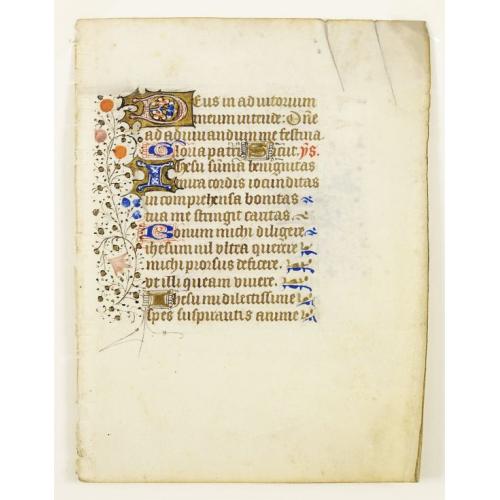 Deus in adiutorium
meum intende: Dñe
ad adiuvandum me festina
Gloria patri Sicut. ys.
Ihesu sūma benignitas
mira cordis iocunditas
in comprehensa bonitas
tua me stringit caritas.
Bonum michi diligere
ihesum nil vltra querere
michi prorsus deficere.
vt illi queam vivere.
Ihesu mi dilectissime
spes suspirantis anime